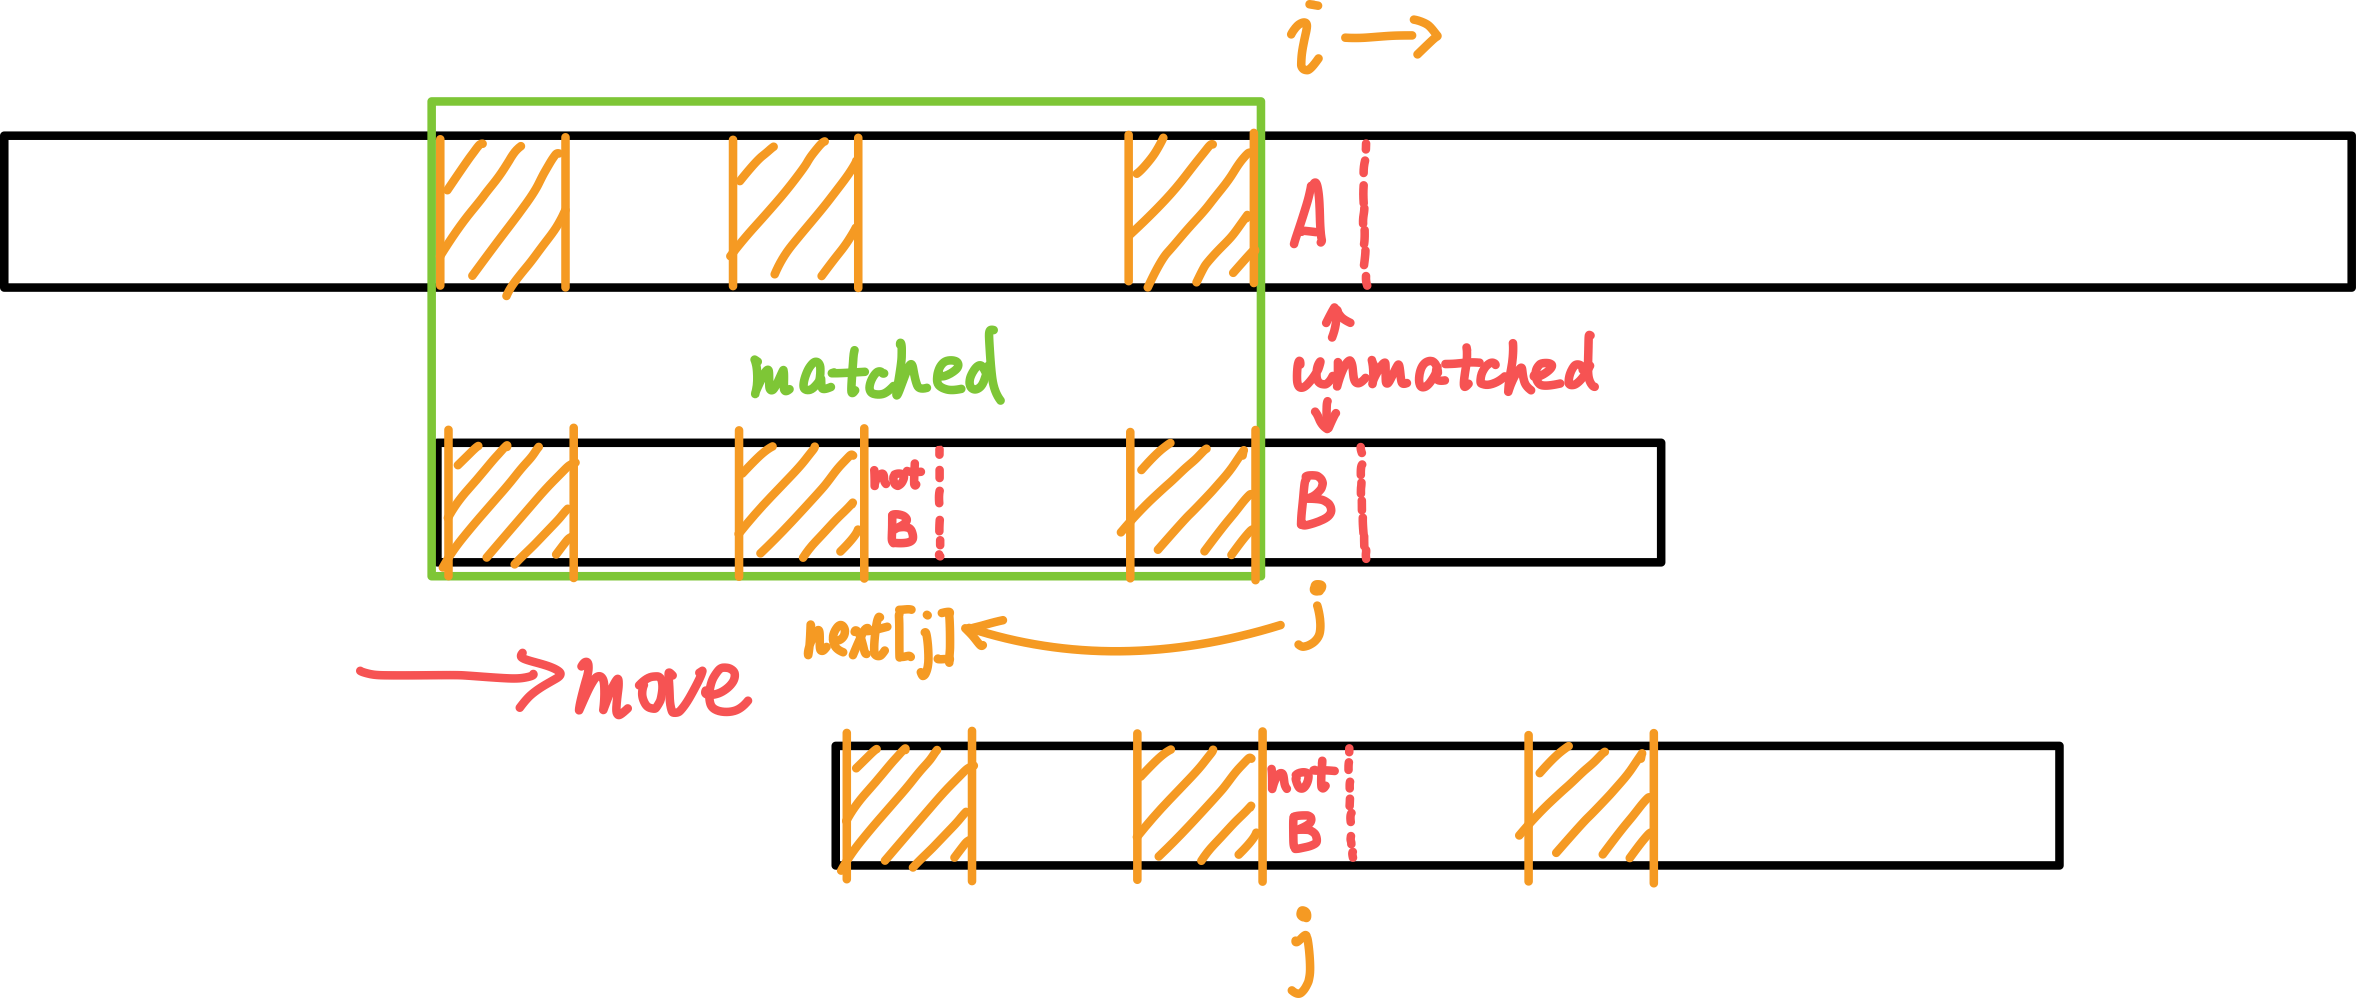 i
A
matched
unmatched
not
B
B
next[j]
j
move
not
B
j